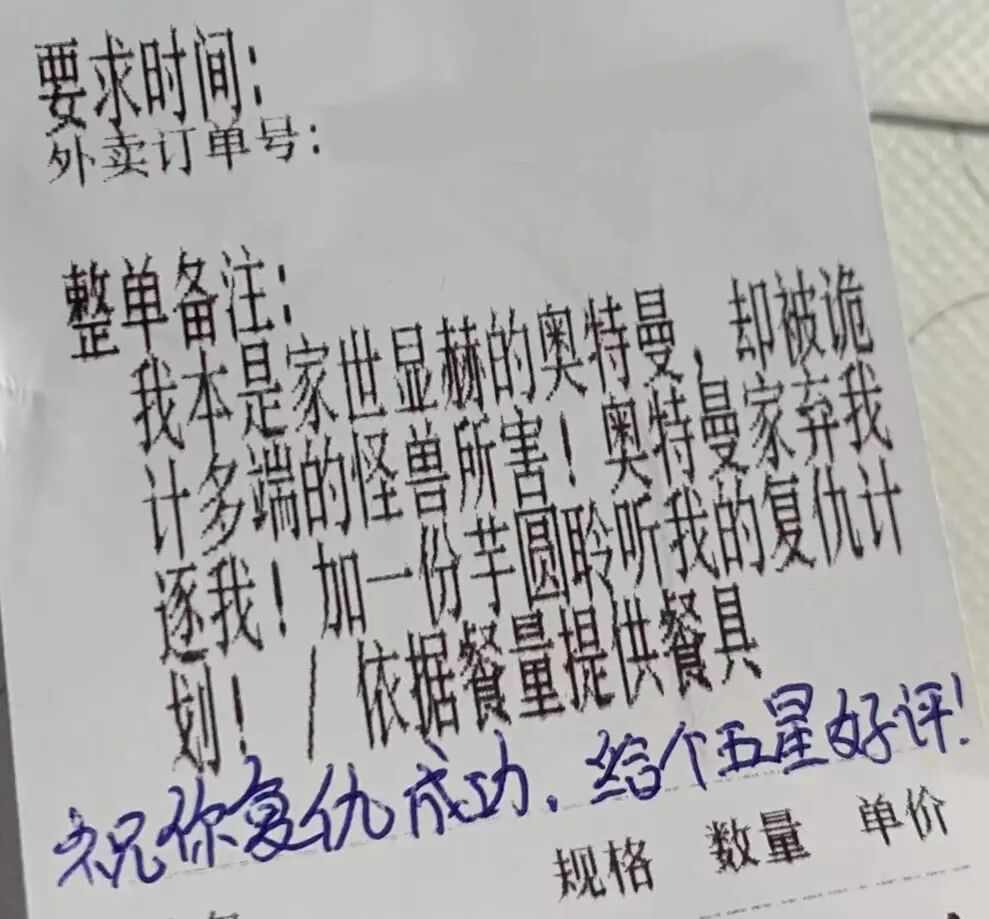 要求时间:
外卖订单号:
整单备注:
我本是家世显赫的奥特曼，却被诡
计多端的怪兽所害！奥特曼家弃我
逐我！加一份芋圆聆听我的复仇计
划！/依据餐量提供餐具
祝你复仇成功、给个五星好评!
规格 数量 单价